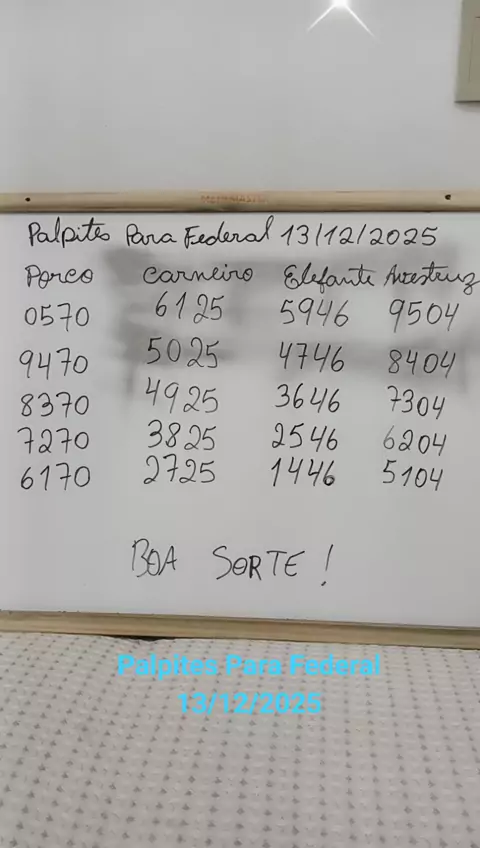 Palpites Para Federal 13/12/2025
Porco Carneiro Elefante Avestruz
0570 6125 5946 9504
9470 5025 4746 8404
8370 4925 3646 7304
7270 3825 2546 6204
6170 2725 1446 5104
BOA SORTE !
Palpites Para Federal
13/12/2025